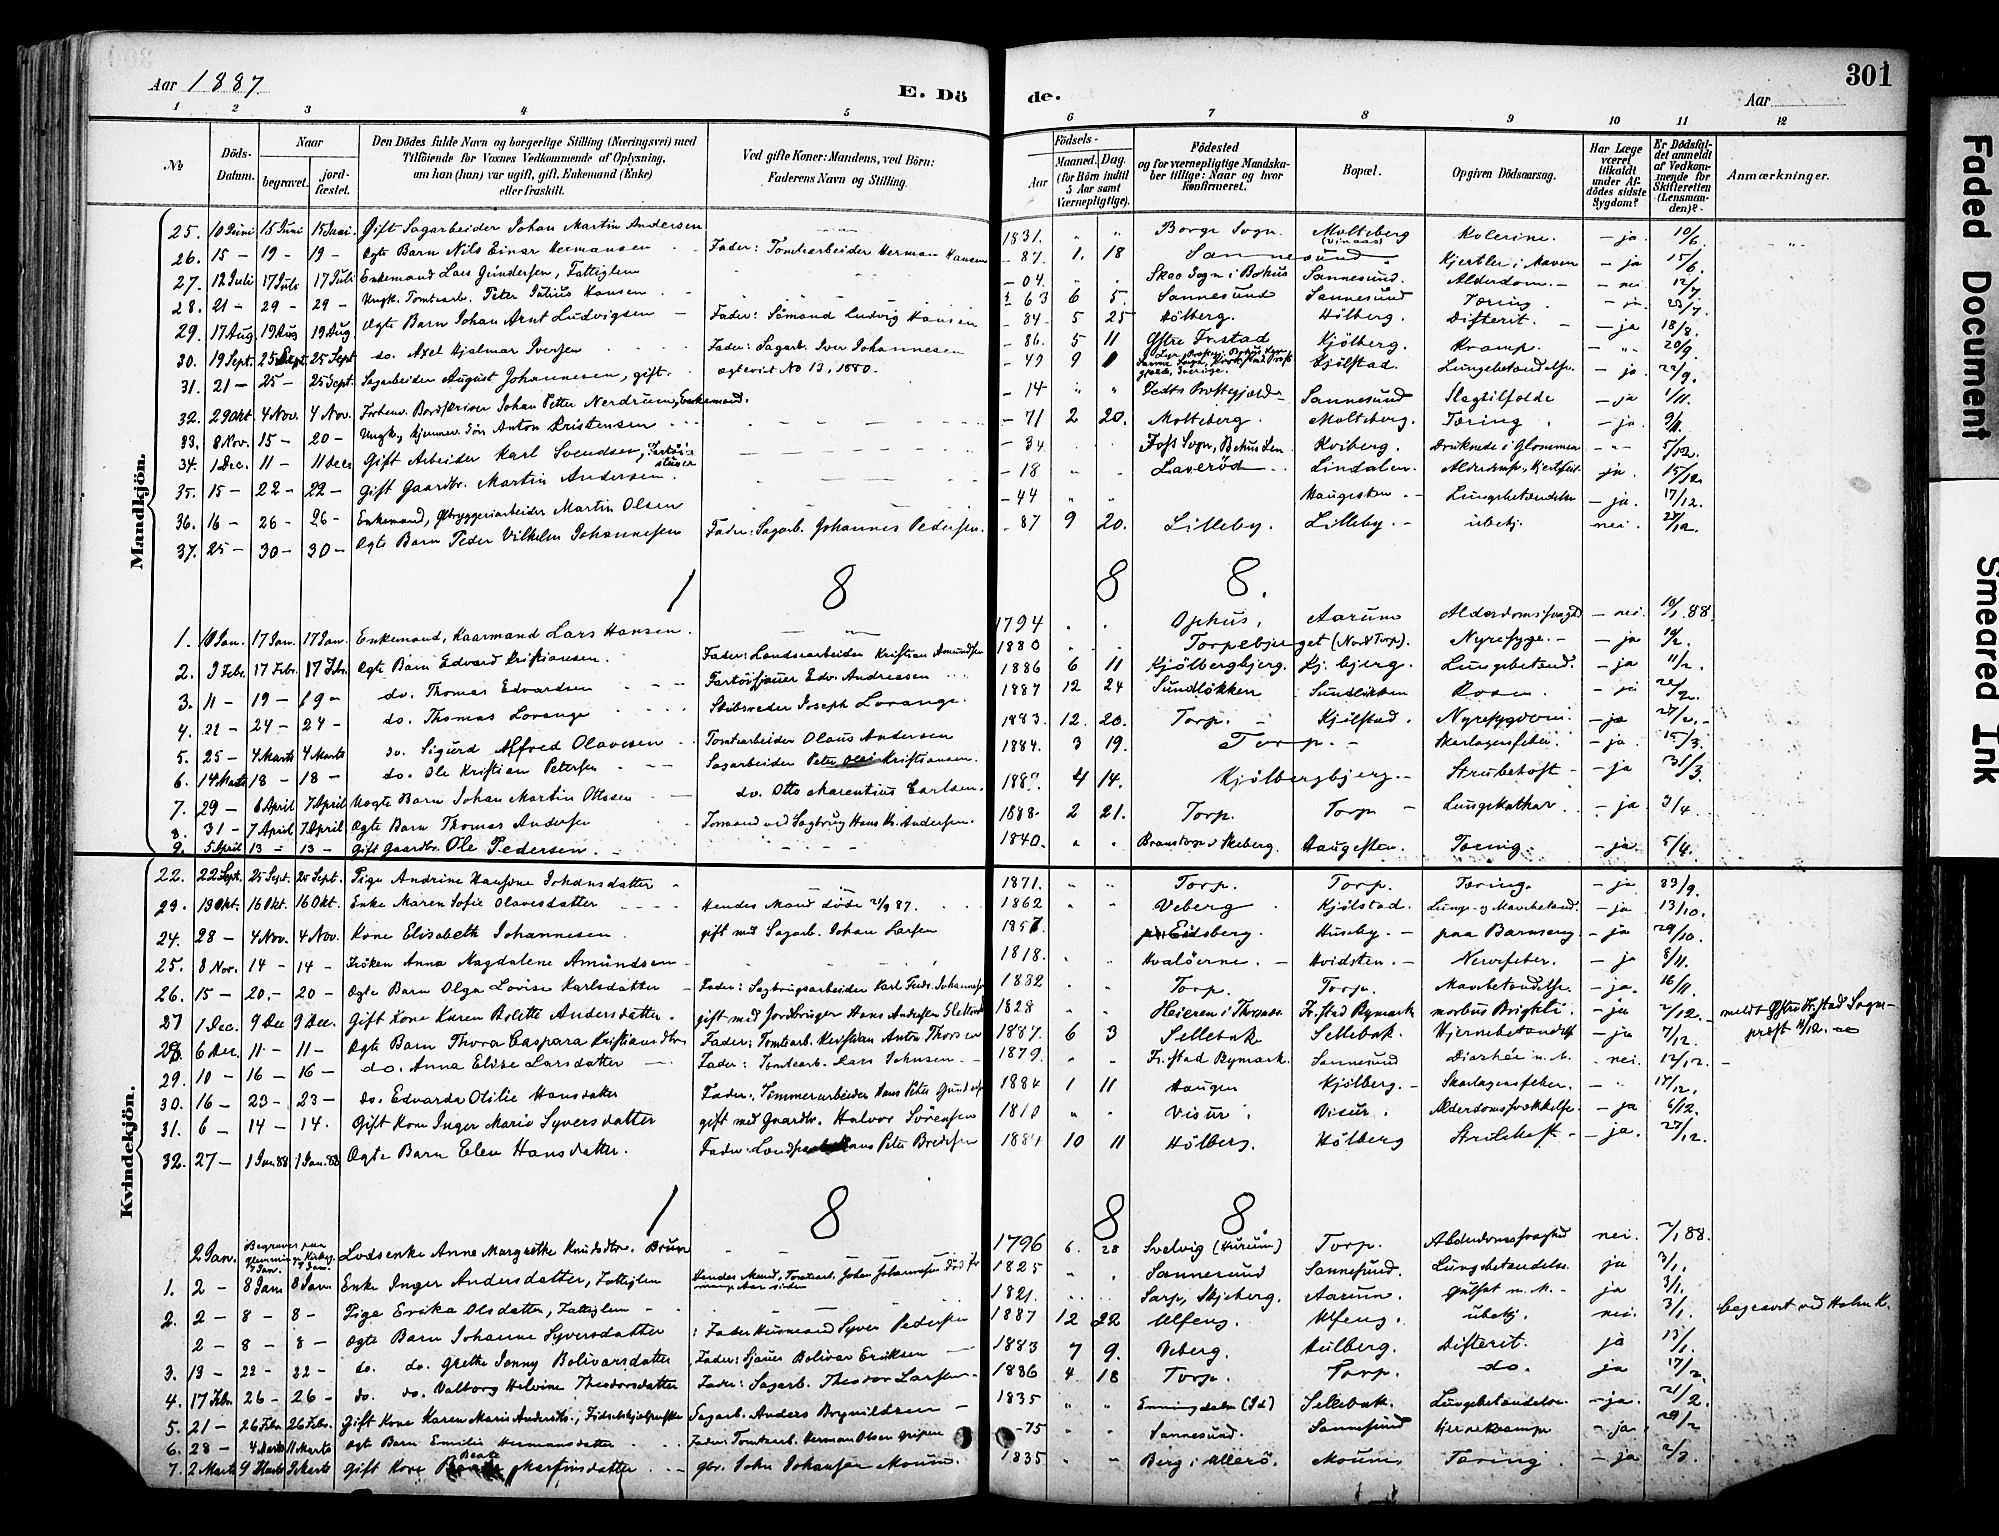 Aar 1887.
E. Dö de.
Aar
301
1 2 3 4 5 6 7 8 9 10 11 12
No
Döds-Datum.
Naar
begravet. jordfæstet.
Den Dödes fulde Navn og borgerlige Stilling (Næringsvei) med Tilföiende for Voxnes Vedkommende af Oplysning, om han (hun) var ugift, gift, Enkemand (Enke) eller fraskilt.
Ved gifte Koner: Mandens, ved Börn: Faderens Navn og Stilling.
Födsels-
Aar
Maaned. Dag.
(for Börn indtil 5 Aar samt Værnepligtige).
Födested og for værnepligtige Mandskaber tillige: Naar og hvor konfirmeret.
Bopæl.
Opgiven Dödsaarsag.
Har Læge været tilkaldt under Afdödes sidste Sygdom?
Er Dödsfaldet anmeldt af Vedkommende for Skifteretten (Lensmanden)?
Anmærkninger.
Mandkjön.
25. 10 Juni 15 Juni 15 Juni. Gift Sagarbeider Johan Martin Andersen 1831. Borge Sogn. Molteberg Kolerine. ja. 10/6.
26. 15 - 19 - 19 - Ægte Barn Nils Einar Hermansen Fader: Tomtearbeider Herman Hansen - 87. 1. 18 Sannesund Kjertler i Maven - ja 15/6.
27. 12 Juli 17 Juli 17 Juli Enkemand Lars Gundersen, Fattiglem - 04. Skee Sogn i Bohus Sannesund. Alderdom. - nei 12/7
28. 21 - 29 - 29 - Ungk. Tomtearb. Peter Julius Hansen 63 6 5. Sannesund Sannesund Tæring.
29. 17 Aug 19 Aug 19 Aug Ægte Barn Johan Arnt Ludvigsen Fader: Sömand Ludvig Hansen - 84 - 5 25 Hölberg. Hölberg. Difterit. - ja 18/8.
30. 19 Sept. 25 Sept 25 Sept do. Axel Hjalmar Iversen Fader: Sagarb. Iver Johannesen - 86. 5 11 Östre Fr.stad Kjölberg. Kramp. 20/9.
31. 21 - 25 - 25 Sept. Sagarbeider August Johannesen, gift. Ægteviet No 13, 1880. - 49 9 Kjölstad. Lungebetændelse. - ja. 22/9.
32. 29 Okt 4 Nov. 4 Nov. Johan Petter Nerdrum, Enkemand. - 14 - Sannesund Slagtilfælde - ja 1/11.
33. 8 Nov. 15 - 20 - Ungk. Anton Kristensen - 71 2 20. Molteberg. Molteberg. Tæring. - ja. 9/11.
34. 1 Dec. 11 - 11 Dec. Gift Arbeider Karl Svendsen, - 34 Foss Sogn, Bohus Len Kviberg. Druknede i Glommen 5/12.
35. 15 - 22 - 22 - Gift Gaardbr. Martin Andersen. - 18 Laveröd Lindalen. ja. 15/12.
36. 16 - 26 - 26 - Enkemand, Ølbryggeriarbeider Martin Olsen - 44 Haugesten. Lungebetændelse - ja. 17/12.
37. 25 - 30 - 30 - Ægte Barn Peder Vilhelm Johannesen Fader: Sagarb. Johannes Pedersen. - 87 9 20. Lilleby. Lilleby. ubekj. nei. 27/12.
1 8 8 8.
1. 10 Jan. 17 Jan. 17 Jan. Enkemand, Kaarmand Lars Hansen. 1794 Ophus. Aarum Alderdomssvagh. - nei. 10/1 88.
2. 9 Febr. 17 Febr. 17 Febr. Ægte Barn Edvard Kristiansen. Fader: Landsarbeider Kristian Amundsen 1880 Torpebjerget (Nordt Torp). Nyresyge. - ja
3. 11 - 19 - 19 - do. Thomas Edvardsen Fartöisfører Edv. Andreasen 1886 6 11 Kjölbergbjerg. Kj. bjerg. Lungebetænd. - ja 11/2.
4. 21 - 24 - 24 - do. Thomas Lorange Skibsreder Joseph Lorange. 1887 12 24 Sundløkken Sundløkken Rosen. - ja 22/2.
5. 25 - 4 Marts 4 Marts do. Sigurd Alfred Olavesen Tomtearbeider Olaus Andersen 1883. 12. 20. Torp. Kjölstad. Nyresygdom. - ja 27/2.
6. 14 Marts 18 - 18 - do. Ole Kristian Petersen Sagarbeider Peter Kristiansen. 1884. 3 19. Torp. Skarlagensfeber. - ja. 15/3.
7. 29 - 6 April 7 April Uægte Barn Johan Martin Ottosen do. Otto Marentius Carlsen. 1887. 4 14. Kjölbergbjerg. Strubehoste - ja 31/3.
8. 31 - 7 April 7 April Ægte Barn Thomas Andersen Formand ved Sagbrug Hans Kr. Andersen. 1888. 2 21. Torp. Torp Lungekathar. - ja 3/4.
9. 5 April 13 - 13 - Gift Gaardbr. Ole Pedersen. 1840. Haugesten. Tæring. - ja. 5/4.
Kvindekjön.
22. 22 Sept. 25 Sept. 25 Sept. Pige Andrine Johansdatter 1871. Torp. Torp. Tæring. - ja 23/9.
23. 13 Okt. 16 Okt. 16 Okt. Enke Maren Sofie Olavesdatter Hendes Mand döde 21/9 87. 1862 Veberg Kjölstad. Lunge- og Mavebetænd. - ja. 13/10.
24. 28 - 4 Nov. 4 Nov. Kone Elisabeth Johannesen. gift med Sagarb. Johan Larsen 1857 Eidsberg. Huseby. paa Barnseng - ja 29/10.
25. 8 Nov. 14 - 14 - Fröken Anna Magdalene Amundsen 1818. Hvalöerne. Hvidsten. Nervefeber. - ja 8/11.
26. 15 - 20. - 20 - Ægte Barn Olga Lovise Karlsdatter Fader: Sagbrugsarbeider Karl Ferd. Johannesen 1882 Torp. Torp. Mavebetændelse. - ja. 16/11.
27 1 Dec. 9 Dec 9 Dec. Gift Kone Karen Bolette Andersdatter. gift med Jordbruger Hans Andersen 1828 Heieren i Fr.stad Bymark morbus Brightii. - ja 2/12. meldt Östre Fr.stad Sognepræst
28. 6 Dec. 11 - 11 - Ægte Barn Thora Caspara Kristiansdtr. Fader: Tomtearb. Kristian Anton Thorsen 1887. 6 3 Sellebak Sellebak. Hjernebetændelse - ja 7/12.
29. 10 - 16 - 16 - do. Anna Elise Larsdatter Fader: Tomtearb. Lars Johnsen 1879. Fr.stad Bymark. Sannesund Diarrhée m. M. - nei. 12/12.
30. 16 - 23 - 23 - do. Edvarda Otilie Hansdatter Fader: Tömmerarbeider Hans Peter 1884 1 11 Haugen Kjölberg. Skarlagensfeber. 17/12.
31. 6 - 14 - 14. Gift Kone Inger Marie Syversdatter gift med Gaardbr. Halvor Sörensen 1810 Visur. Visur. Alderdomssvækkelse. - ja 6/12.
32. 27 - 1 Jan. 88 1 Jan. 88 Ægte Barn Elen Hansdatter. Hans Peter 1884 10 11 Hölberg. Hölberg Strubehoste. - ja. 27/12.
1 8 8 8
2 Jan. Begraves paa Glemminge Kirkeg. Lodsenke Anne Margrethe Knudsdtr. Brun 1796 6. 28 Svelvig (Hurum) Torp. Alderdomssvaghed nei. 2/1 88.
1. 2 - 8 Jan 8 Jan Enke Inger Andersdatter, Fattiglem Hendes Mand, Tomtearb. Johan Johannesen död for mange Aar siden 1825 Sannesund Sannesund. Lungebetændelse. ja 3/1.
2. 2 - 8 - 8 - Pige Erika Olsdatter, Fattiglem 1821. Sarp, Skjeberg. Aarum. Gulsot m. M. - ja 3/1.
2 - 8 - 8 - Ægte Barn Johanne Syversdatter Fader Husmand Syver Pedersen 1887 12 22 Ulfeng. Ulfeng. ubekj. nei. 3/1. begravet ved Holm K.
3. 13 - 22 - 22 - do. do. Grethe Jenny Bolivarsdatter Fader: Sjauer Bolivar Eriksen 1883 7 9. Veberg. Hulberg. Difterit. ja 13/1.
4. 17 Febr. 26 - 26 - do. do. Valborg Helvine Theodorsdatter Fader: Sagarb. Theodor Larsen. 1886 4 18 Torp. Torp. do. ja 17/2
5. 21 - 26 Febr 26 Febr. Gift Kone Karen Marie Andersdtr., Sagarb. Anders Brynildsen 1835 Enningdalen (Id) Sellebak. Lungebetændelse. - ja. 21/2.
6. 28 - 4 Marts 11 Marts Ægte Barn Emilie Hermansdatter Fader: Tomtearb. Herman Olsen - 75 Sannesund. Sannesund Hjernekrampe - ja. 29/2
7. 2 Marts 9 Marts 9 Marts Gift Kone Beate Martinsdatter gbr. John Johansen Moum. 1835 Berg i Moum. Tæring. - ja. 2/3.
Faded Document
Smeared Ink